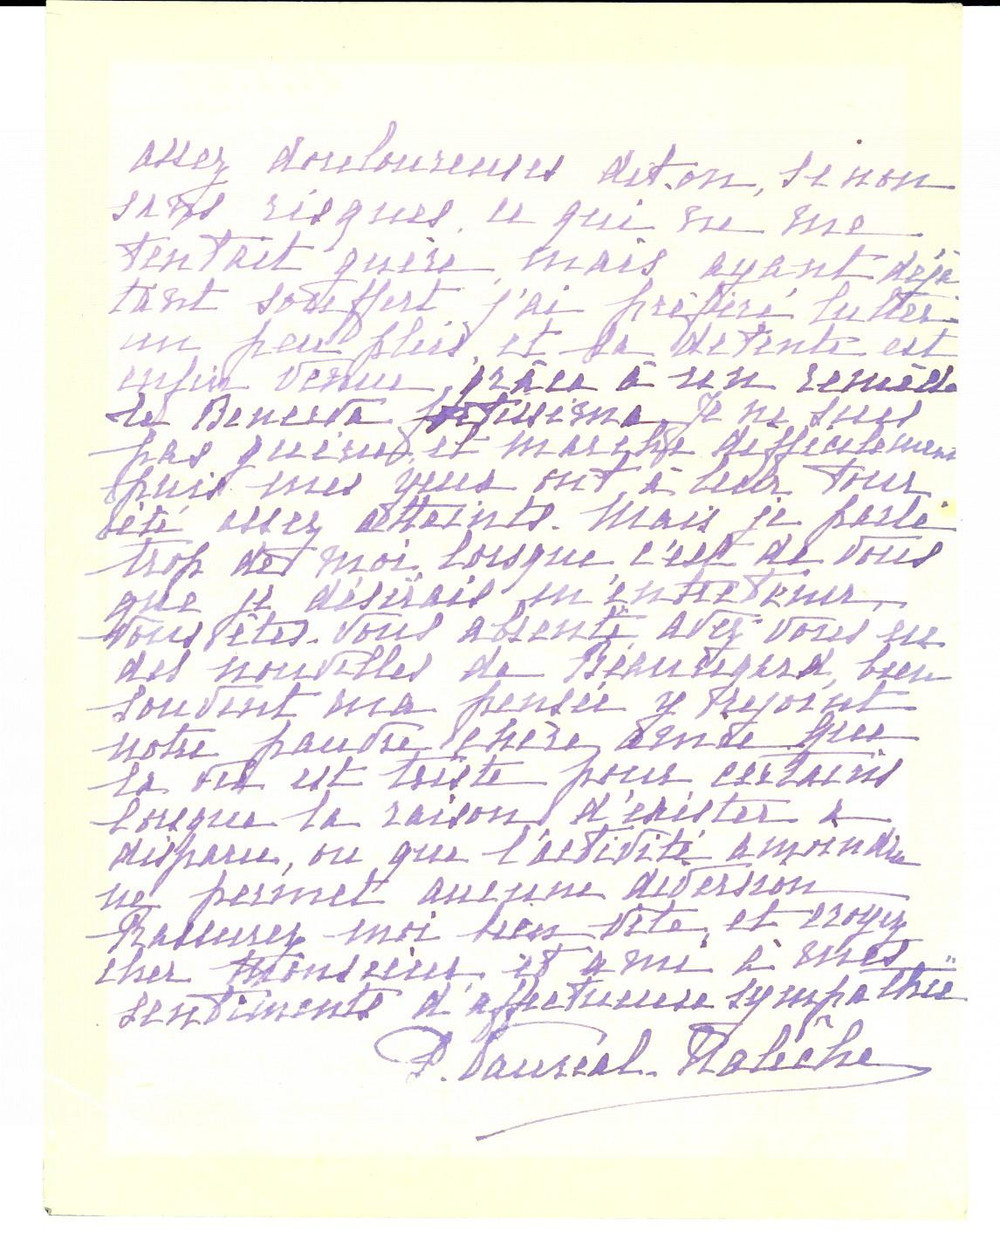 assez douloureuses dit-on, sinon
sans risques, ce qui ne me
tentait guère, mais ayant déjà
tant souffert j'ai préféré lutter
un peu plus, et la détente est
enfin venue, grâce à un remède
le Benerva fortissima. Je ne suis
pas guérie, et marche difficilement
puis mes yeux ont à leur tour
été assez atteints. Mais je parle
trop de moi, lorsque c'est de vous
que je désirais m'entretenir,
vous êtes-vous absenté, avez vous eu
des nouvelles de Beauregard, bien
souvent ma pensée y rejoint
notre pauvre chère amie. Que
la vie est triste pour certains
lorsque la raison d'exister a
disparu, ou que l'activité amoindrie
ne permet aucune diversion
Rassurez moi bien vite, et croyez
cher Monsieur et ami à mes
sentiments d'affectueuse sympathie
P. Vauréal-